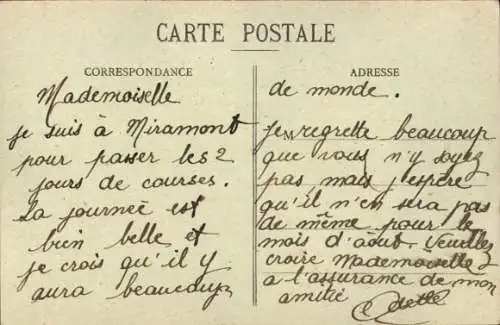 CARTE POSTALE
CORRESPONDANCE
Mademoiselle
je suis à Miramont
pour passer les 2
jours de courses.
La journée est
bien belle et
je crois qu'il y
aura beaucoup
ADRESSE
de monde.
Je regrette beaucoup
que vous n'y soyez
pas mais j'espère
qu'il n'en sera pas
de même pour le
mois d'août. Veuillez
croire Mademoiselle
a l'assurance de mon
amitié
Odette